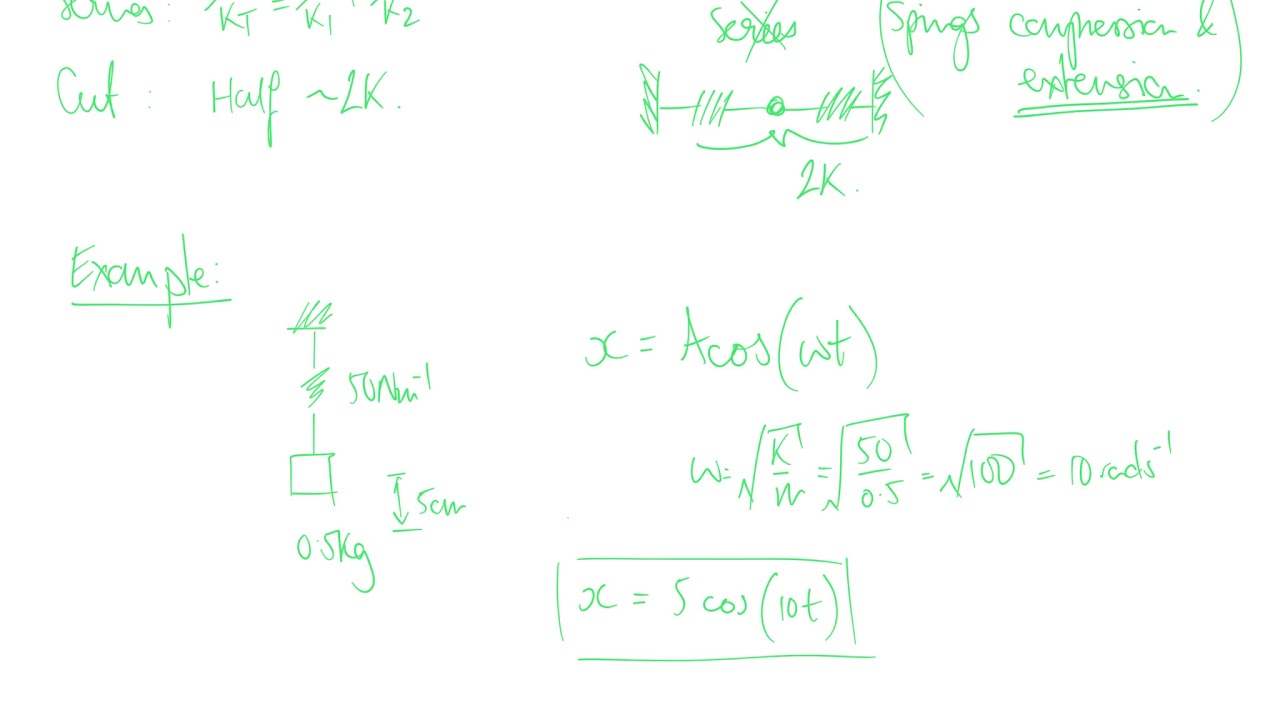 Series: 1/KT = 1/K1 + 1/K2
Cut: Half ~2K.
Series
(Spings compression & extension.)
2K.
Example:
50Nm⁻¹
5cm
0.5kg
x = A cos(ωt)
ω = √(K/m) = √(50/0.5) = √100 = 10 rads⁻¹
x = 5 cos(10t)